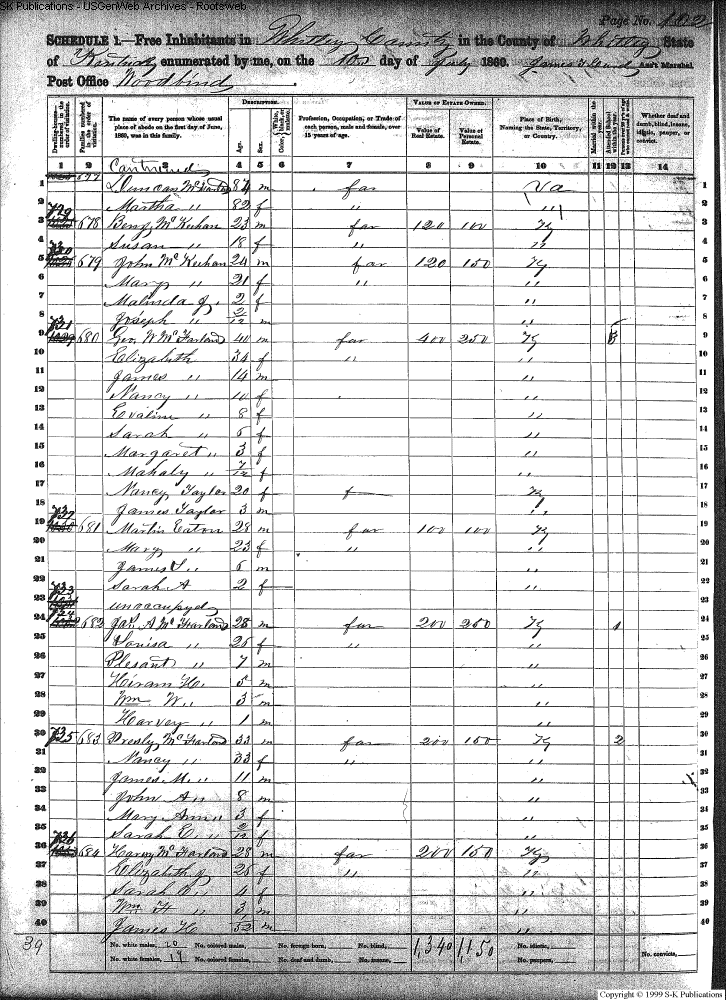 S-K Publications - USGenWeb Archives - Rootsweb
Page No. 102
SCHEDULE 1.—Free Inhabitants in Whitley County in the County of Whitley State
of Kentucky enumerated by me, on the day of July 1860. Ass't Marshal
Post Office Woodbine
Dwelling-houses—numbered in the order of visitation.
Families numbered in the order of visitation.
The name of every person whose usual place of abode on the first day of June, 1860, was in this family.
DESCRIPTION.
Age.
Sex.
Color, White, black, or mulatto.
Profession, Occupation, or Trade of each person, male and female, over 15 years of age.
VALUE OF ESTATE OWNED.
Value of Real Estate.
Value of Personal Estate.
Place of Birth, Naming the State, Territory, or Country.
Married within the year.
Attended School within the year.
Whether deaf and dumb, blind, insane, idiotic, pauper, or convict.
1 2 3 4 5 6 7 8 9 10 11 12 13 14
Continued
1 677 Duncan McFarland 84 m far Va
2 Martha " 82 f " "
3 729 678 Benj. McKeehan 23 m far 120 100 Ky
4 Susan " 18 f " "
5 730 679 John McKeehan 24 m far 120 150 Ky
6 Mary " 21 f " "
7 Malinda J. 2 f "
8 Joseph " 2/12 m "
9 731 680 Geo W McFarland 40 m far 400 250 Ky
10 Elizabeth 34 f " "
11 James " 14 m "
12 Nancy " 10 f "
13 Evaline " 8 f "
14 Sarah " 6 f "
15 Margaret " 3 f "
16 Mahaly " 7/12 f "
17 Nancy Taylor 20 f f Ky
18 James Taylor 3 m "
19 732 681 Martin Eaton 28 m far 100 100 Ky
20 Mary " 23 f " "
21 James " 6 m "
22 Sarah A 2 f "
23 733 unoccupyed
24 734 682 Jas. A McFarland 28 m far 200 250 Ky 1
25 Louisa " 26 f " "
26 Plesant " 7 m "
27 Hiram H. 5 m "
28 Wm W. " 3 m "
29 Harvey " 1 m "
30 735 683 Presly McFarland 33 m far 200 150 Ky 2
31 Nancy " 33 f " "
32 James M. " 11 m "
33 John A " 8 m "
34 Mary Ann " 3 f "
35 Sarah E. " 2/12 f "
36 736 684 Harvy McFarland 28 m far 200 150 Ky
37 Elizabeth J 26 f " "
38 Sarah E. " 4 f "
39 Wm H " 3 m "
40 James H m "
39 No. white males, 20 No. colored males, No. foreign born, No. blind, 1,340 1,150 No. idiotic,
No. white females, 19 No. colored females, No. deaf and dumb, No. insane, No. paupers, No. convicts,
Copyright © 1999 S-K Publications